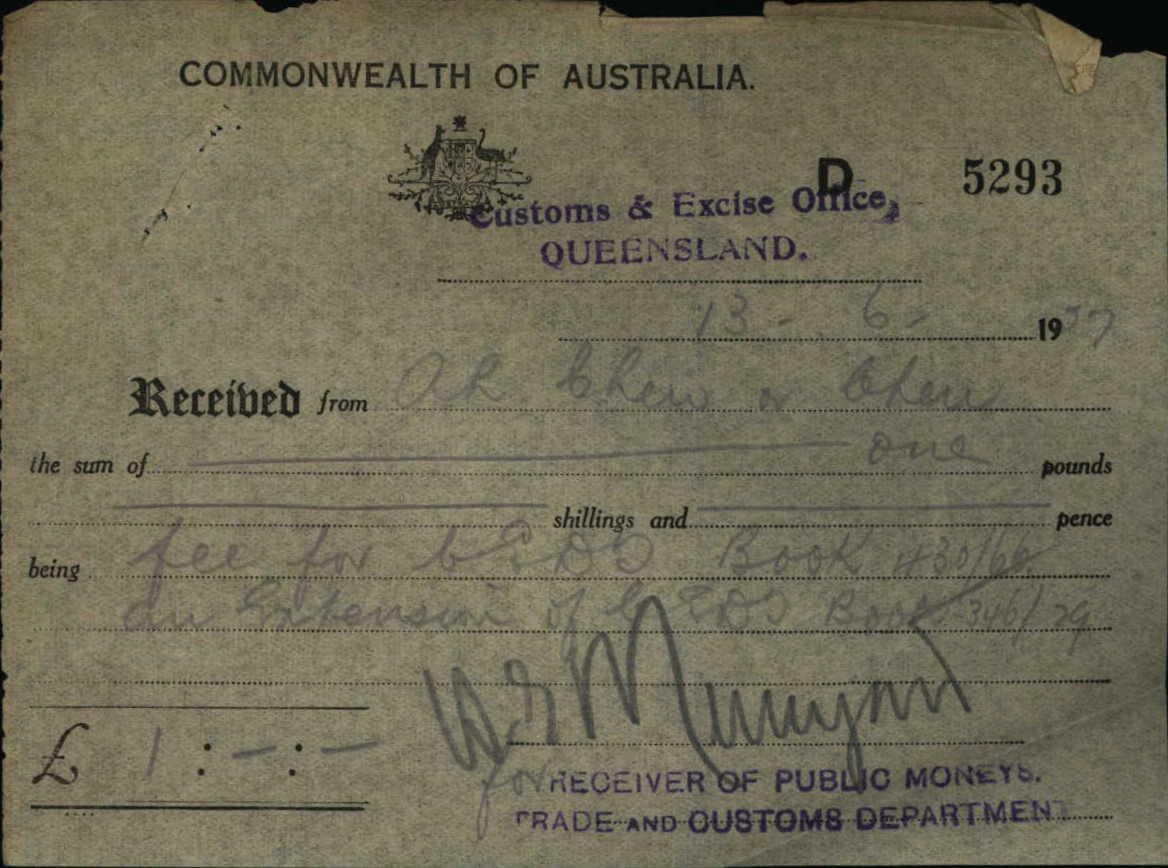 COMMONWEALTH OF AUSTRALIA.
D 5293
Customs & Excise Office,
QUEENSLAND.
13 - 6 - 1937
Received from Ah Chew or Chew
the sum of one pounds
shillings and pence
being fee for CEDT Book 430/66
an Extension of CEDT Book 346/29
£ 1 : - : -
for RECEIVER OF PUBLIC MONEYS.
TRADE AND CUSTOMS DEPARTMENT